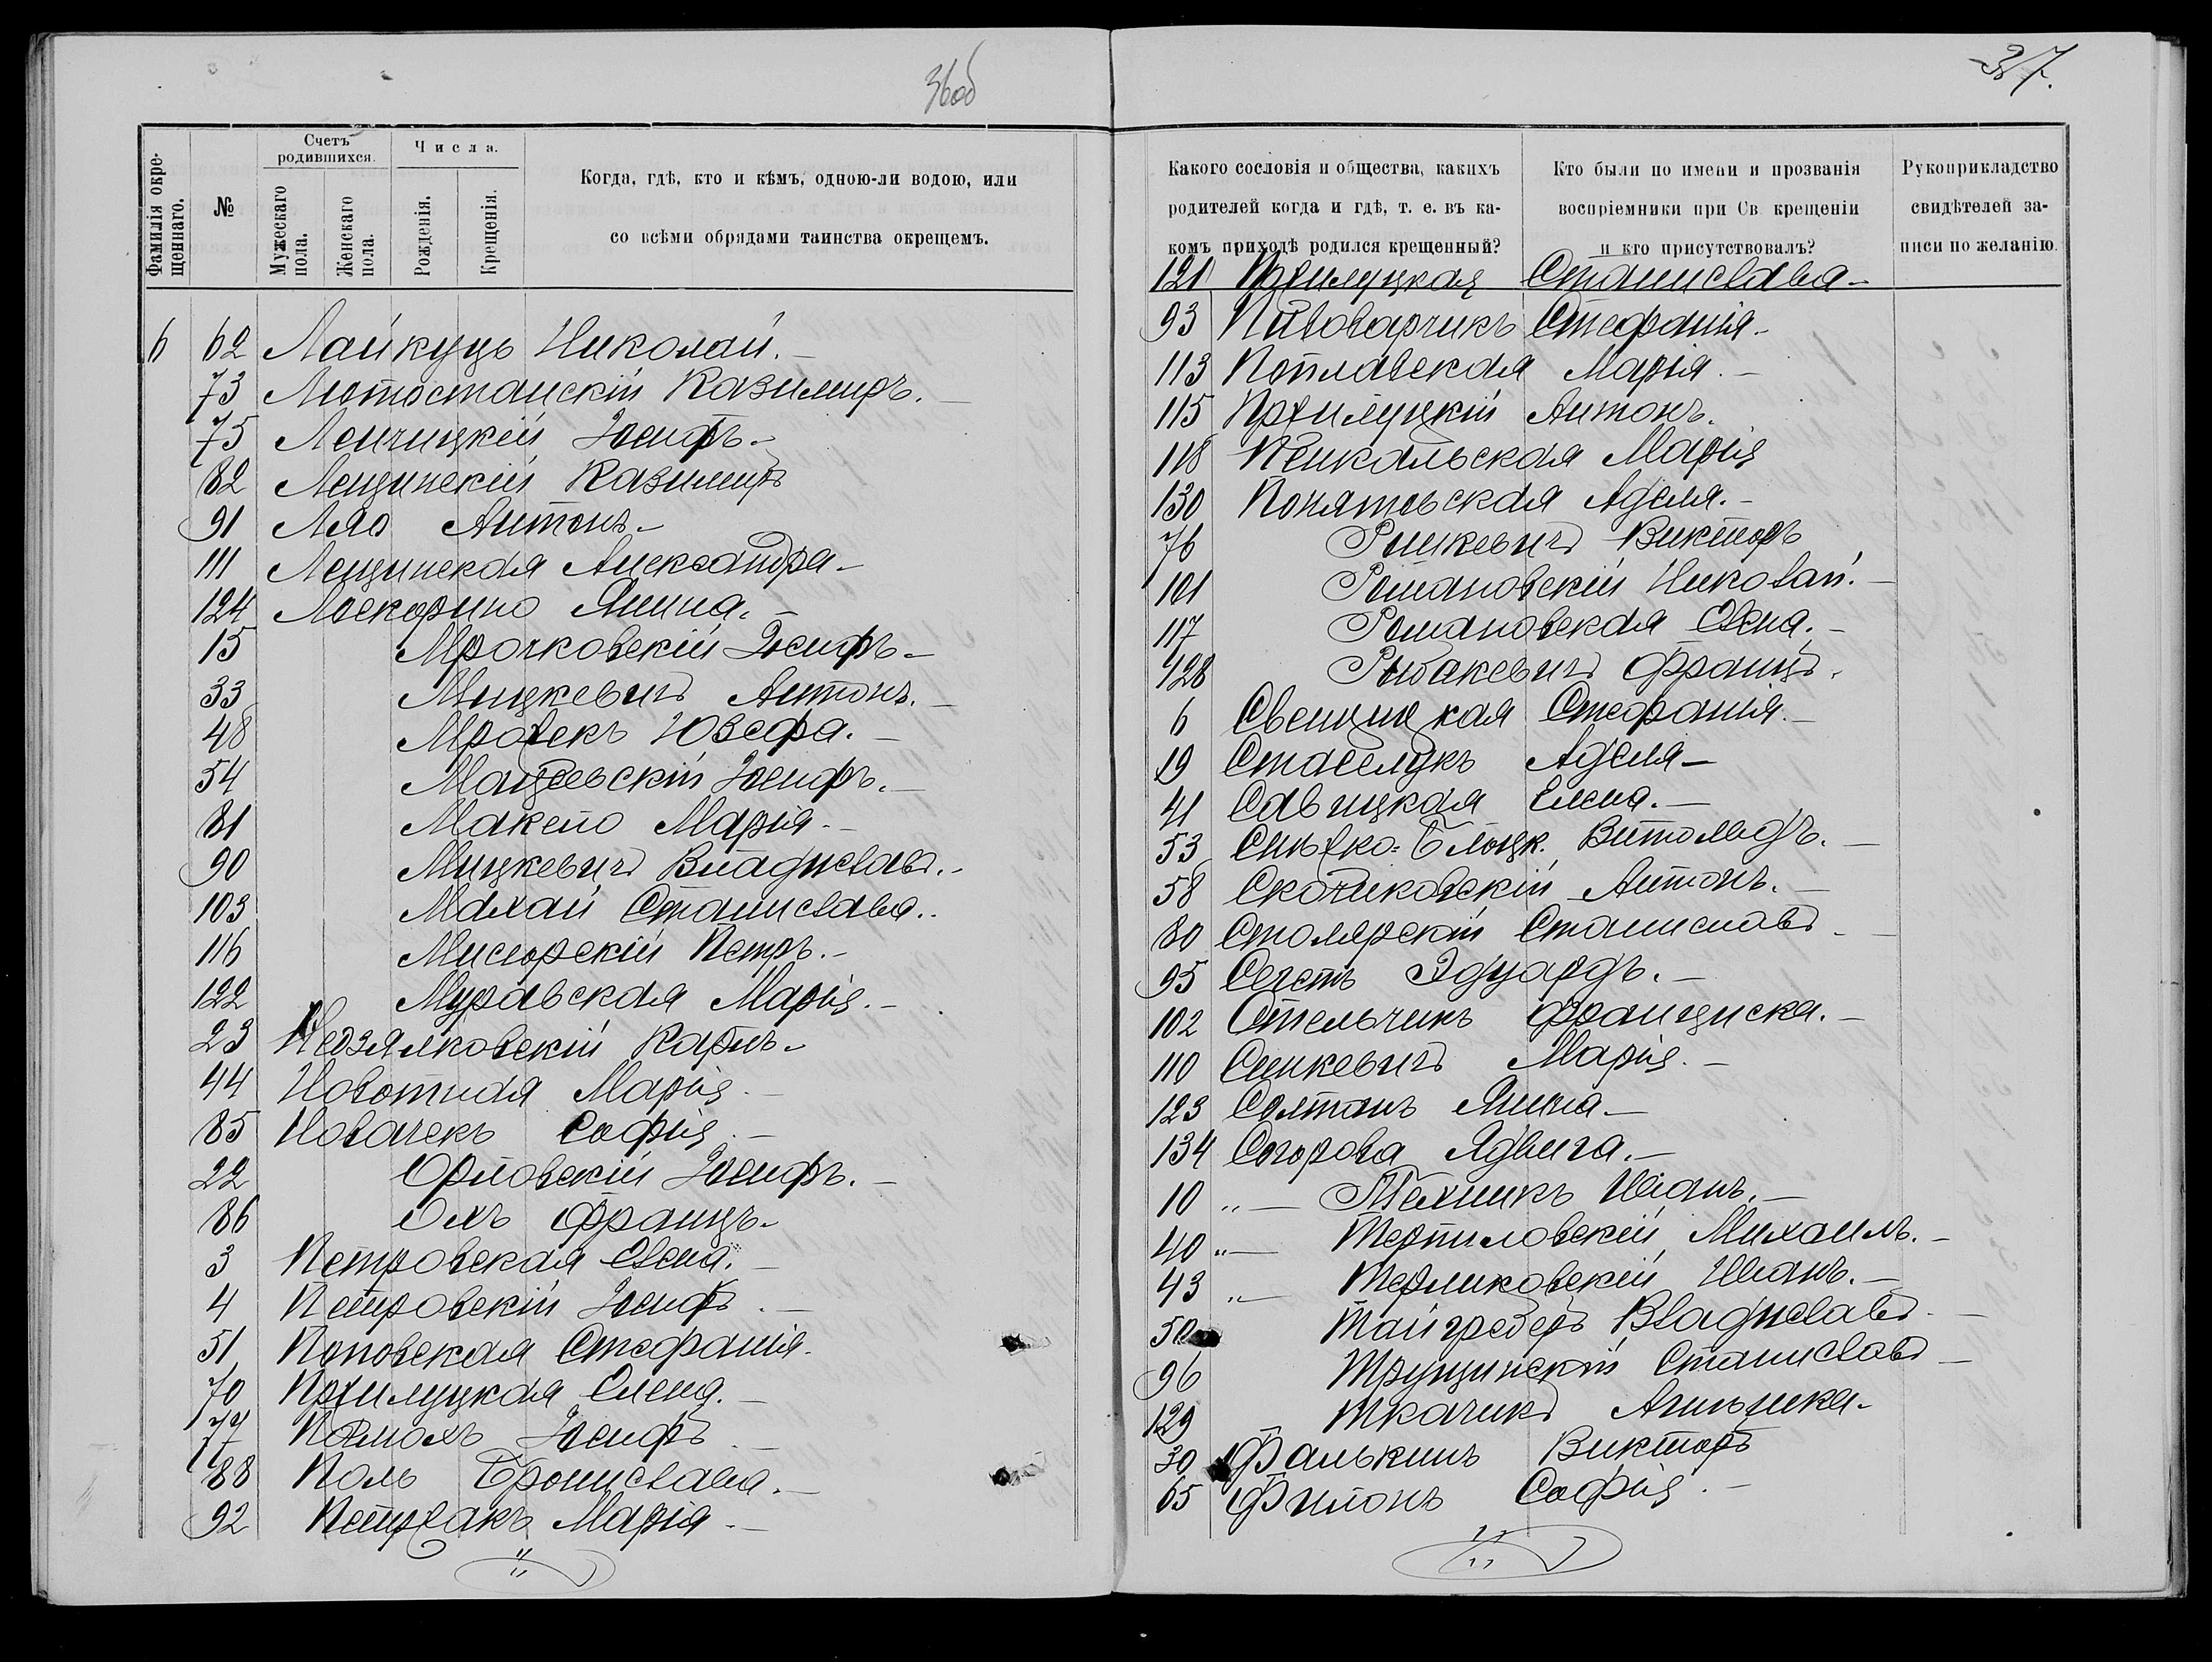 36об
Фамилія окрещеннаго.
№
Счетъ родившихся.
Мужескаго пола.
Женскаго пола.
Числа.
Рожденія.
Крещенія.
Когда, гдѣ, кто и кѣмъ, одною-ли водою, или
со всѣми обрядами таинства окрещемъ.
6 62 Лайкуць Николай.
73 Лютостанскій Казимиръ.
75 Ленчицкій Іосифъ
82 Лещинскій Казимиръ
91 Антонъ
111 Лещинская Александра
124 Янина.
15 Мрочковскій Іосифъ
33 Мицкевичъ Антонъ.
48 Юзефа.
54 Мацеевскій Іосифъ.
81 Марія
90 Мицкевичъ Владиславъ.
103 Махай Станислава.
116 Петръ.
122 Муравская Марія.
23 Недзялковскій Карлъ
44 Новотная Марія
85 Новачекъ Софія
22 Орловскій Іосифъ.
86 Охъ Францъ
3 Петровская Елена.
4 Петровскій Іосифъ
51 Поповская Стефанія.
70 Прхилуцкая Елена.
77 Іосифъ
88 Поль Бронислава.
92 Марія
37.
Какого сословія и общества, какихъ
родителей когда и гдѣ, т. е. въ ка-
комъ приходѣ родился крещенный?
Кто были по имени и прозванія
воспріемники при Св. крещеніи
и кто присутствовалъ?
Рукоприкладство
свидѣтелей за-
писи по желанію.
121 Прхилуцкая Станислава
93 Пивоварчикъ Стефанія
113 Поплавская Марія.
115 Прхилуцкій Антонъ.
118 Пенкальская Марія
130 Понятовская Аделя.
76 Викторъ
101 Романовскій Николай.
117 Романовская Елена.
128 Рыбакевичъ Францъ.
6 Свенцицкая Стефанія.
19 Стаселукъ Аделя
41 Савицкая Елена.
53 Витольдъ.
58 Антонъ.
80 Столярскій Станиславъ
95 Эдуардъ.
102 Стельчикъ Франциска.
110 Синкевичъ Марія.
123 Солтанъ Янина
134 Ядвига.
10 „— Техникъ Иванъ.
40 „— Терпиловскій Михаилъ.
43 „— Терликовскій Иванъ.
50 Тайгреберъ Владиславъ
96 Трущинскій Станиславъ
129 Ткачикъ
30 Фалькинъ Викторъ
65 Филонъ Софія